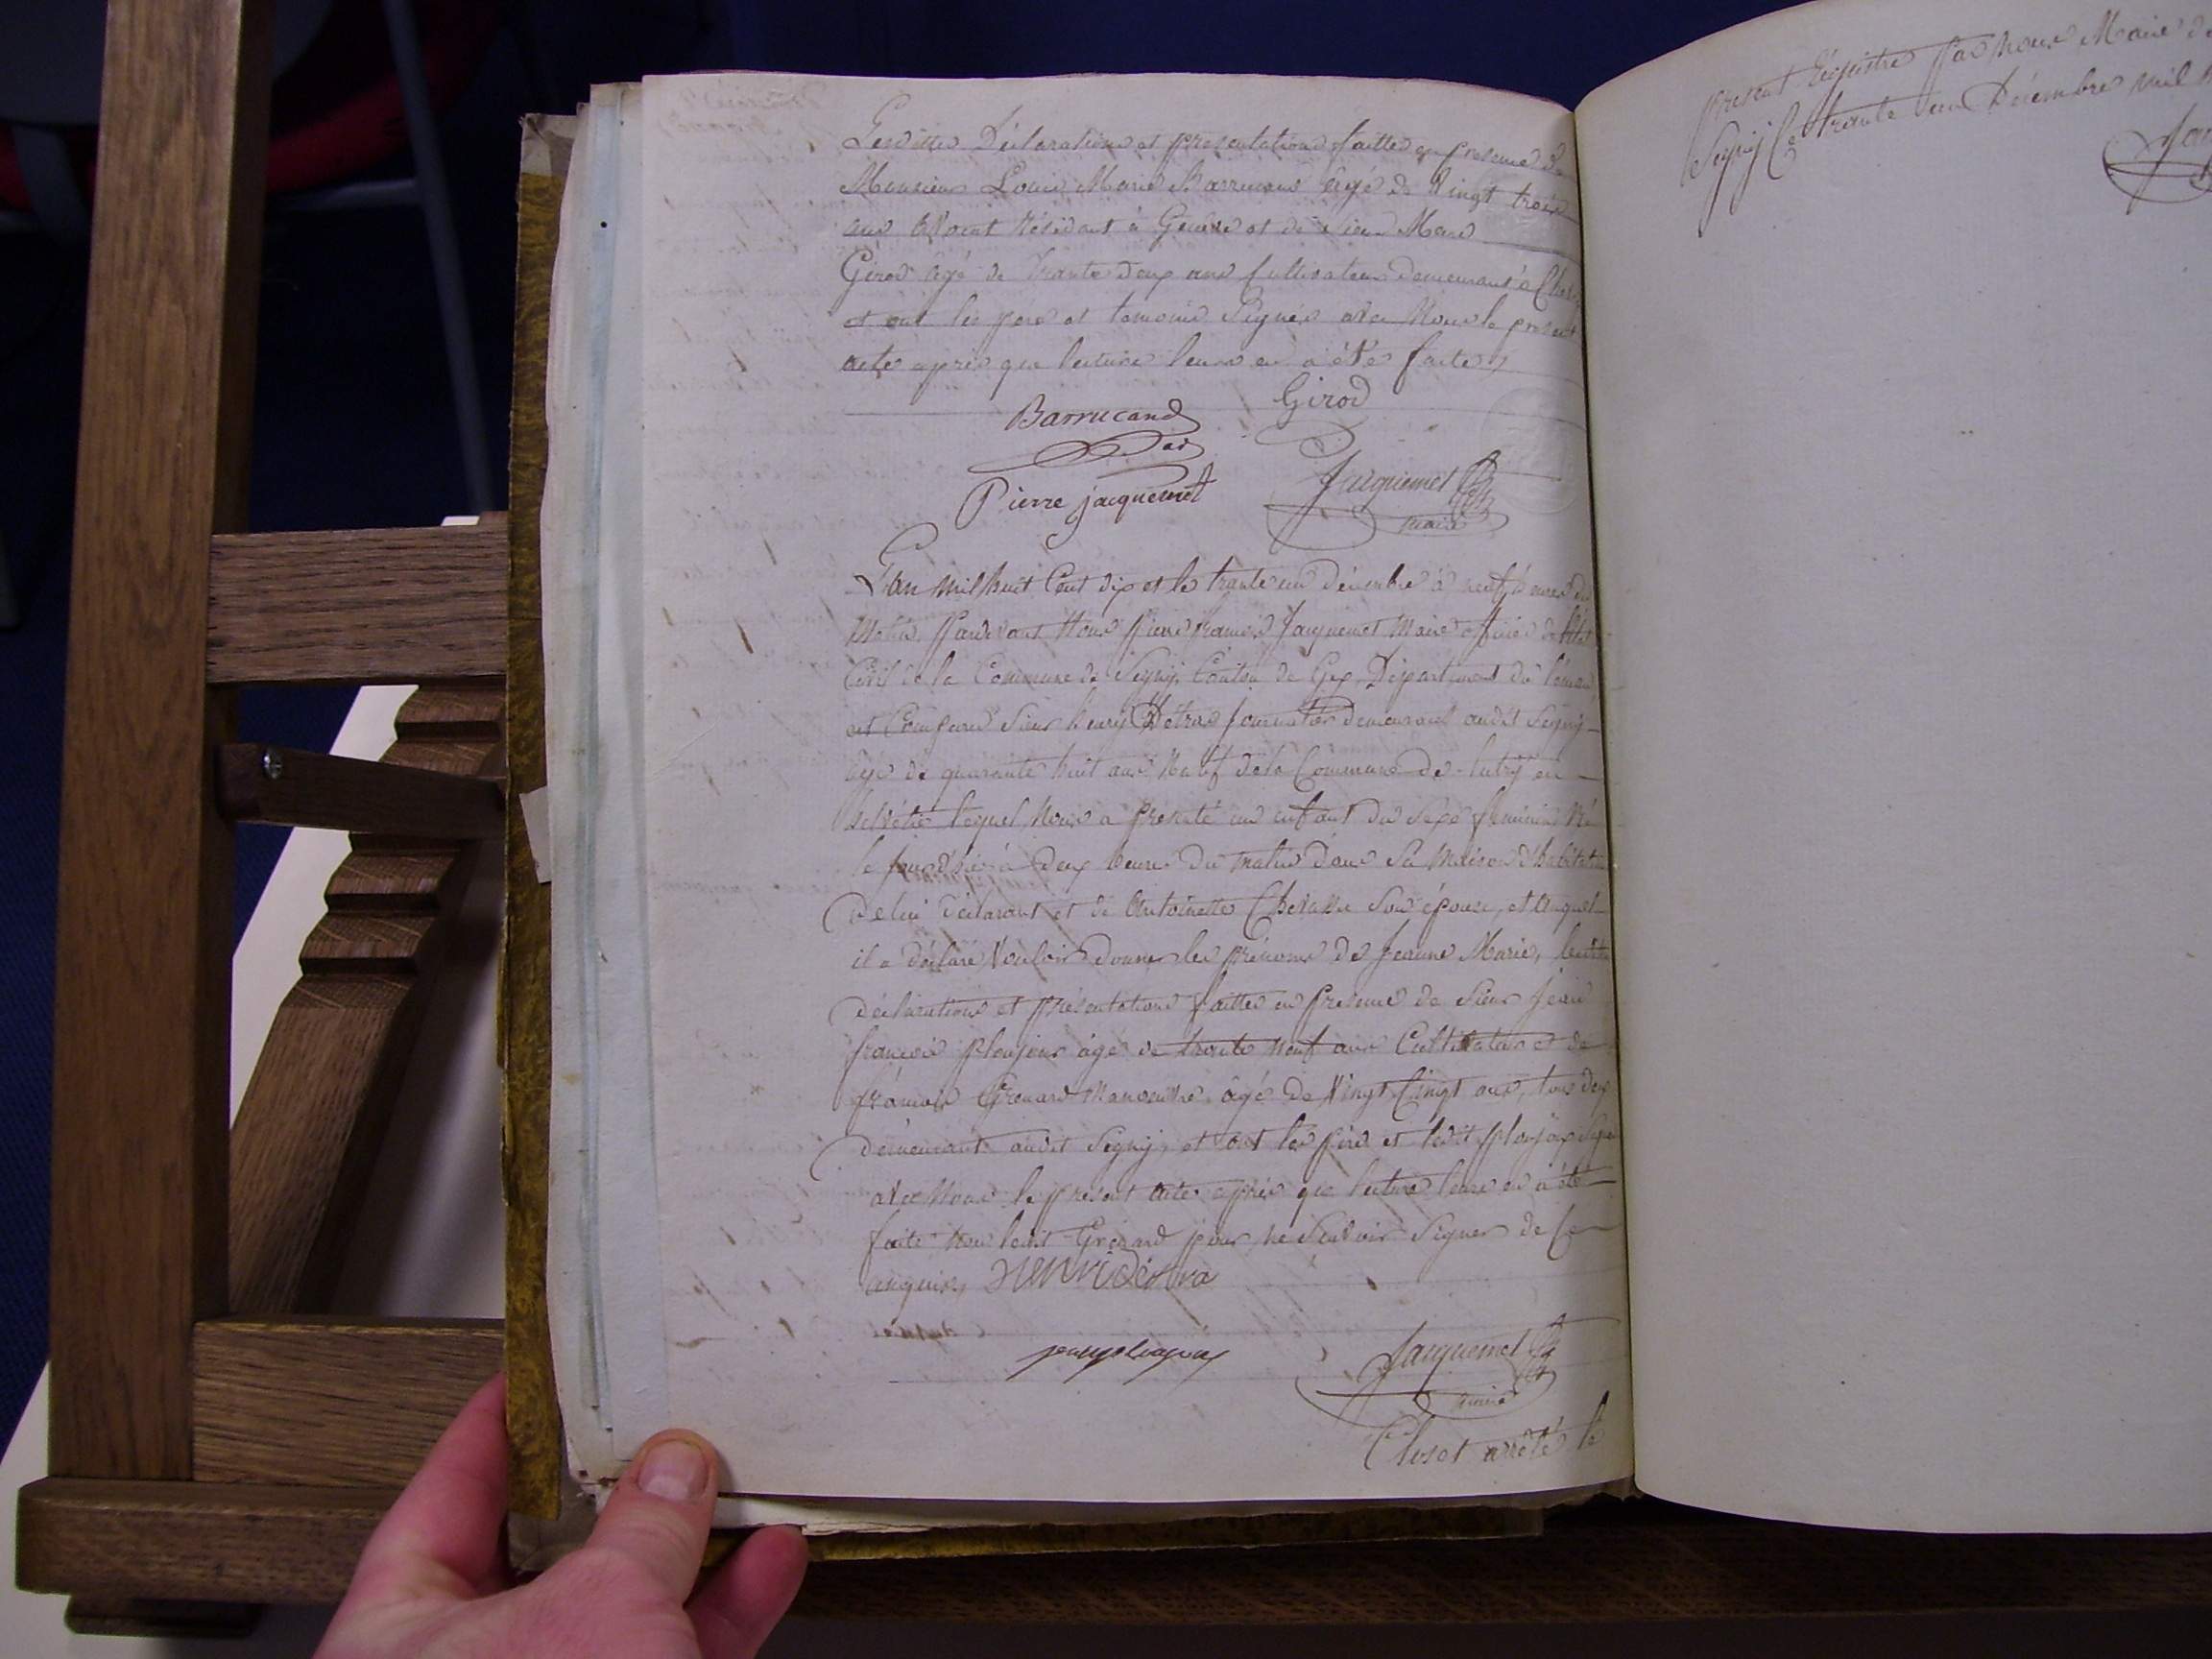 Lesdittes Déclarations et présentations faittes en presence de
Monsieur Louis Marie Barrucand âgé de Vingt trois
ans Avocat Résidant à Genève et de Sieur Marc
Girod âgé de Trante deux ans Cultivateur demeurant à
et ont les pere et temoins Signés avec Nous le present
acte après que lecture leurs en a été faite
Barrucand
Girod
Pierre jacquemet
Jacquemet
maire
L'an Mil huit Cent dix et le trante un décembre à neuf heures du
Matin Pardevant Nous Pierre François Jacquemet Maire officier de l'état
Civil de la Commune de Segny, Canton de Gex Département du Léman
est Comparu Sieur henry Détraz Journalier demeurant audit Segny
âgé de quarante huit ans Natif de la Commune de lutry en
helvétie lequel Nous a presenté un enfant du Sexe feminin Né
le jour d'hier à deux heures du matin dans Sa Maison d'habitation
de lui déclarant et de Antoinette Chevassu Son épouse, et auquel
il a déclaré Vouloir donner les prénoms de Jeanne Marie, lesdittes
déclarations et présentations faittes en presence de Sieur Jean
françois ploujoux âgé de trente Neuf ans Cultivateur et de
françois Grenard Manoeuvre âgé de Vingt Cinqt ans, tous deux
demeurants audit Segny, et ont les père et ledit ploujoux Signé
avec Nous le present acte après que lecture leurs en a été
faite Non ledit Grenard pour ne Savoir Signer de Ce
enquis, Henri Détra
Jacquemet
maire
Clos et arrêté le
present Régistre Par Nous Maire de
Segny Le trante un Décembre mil